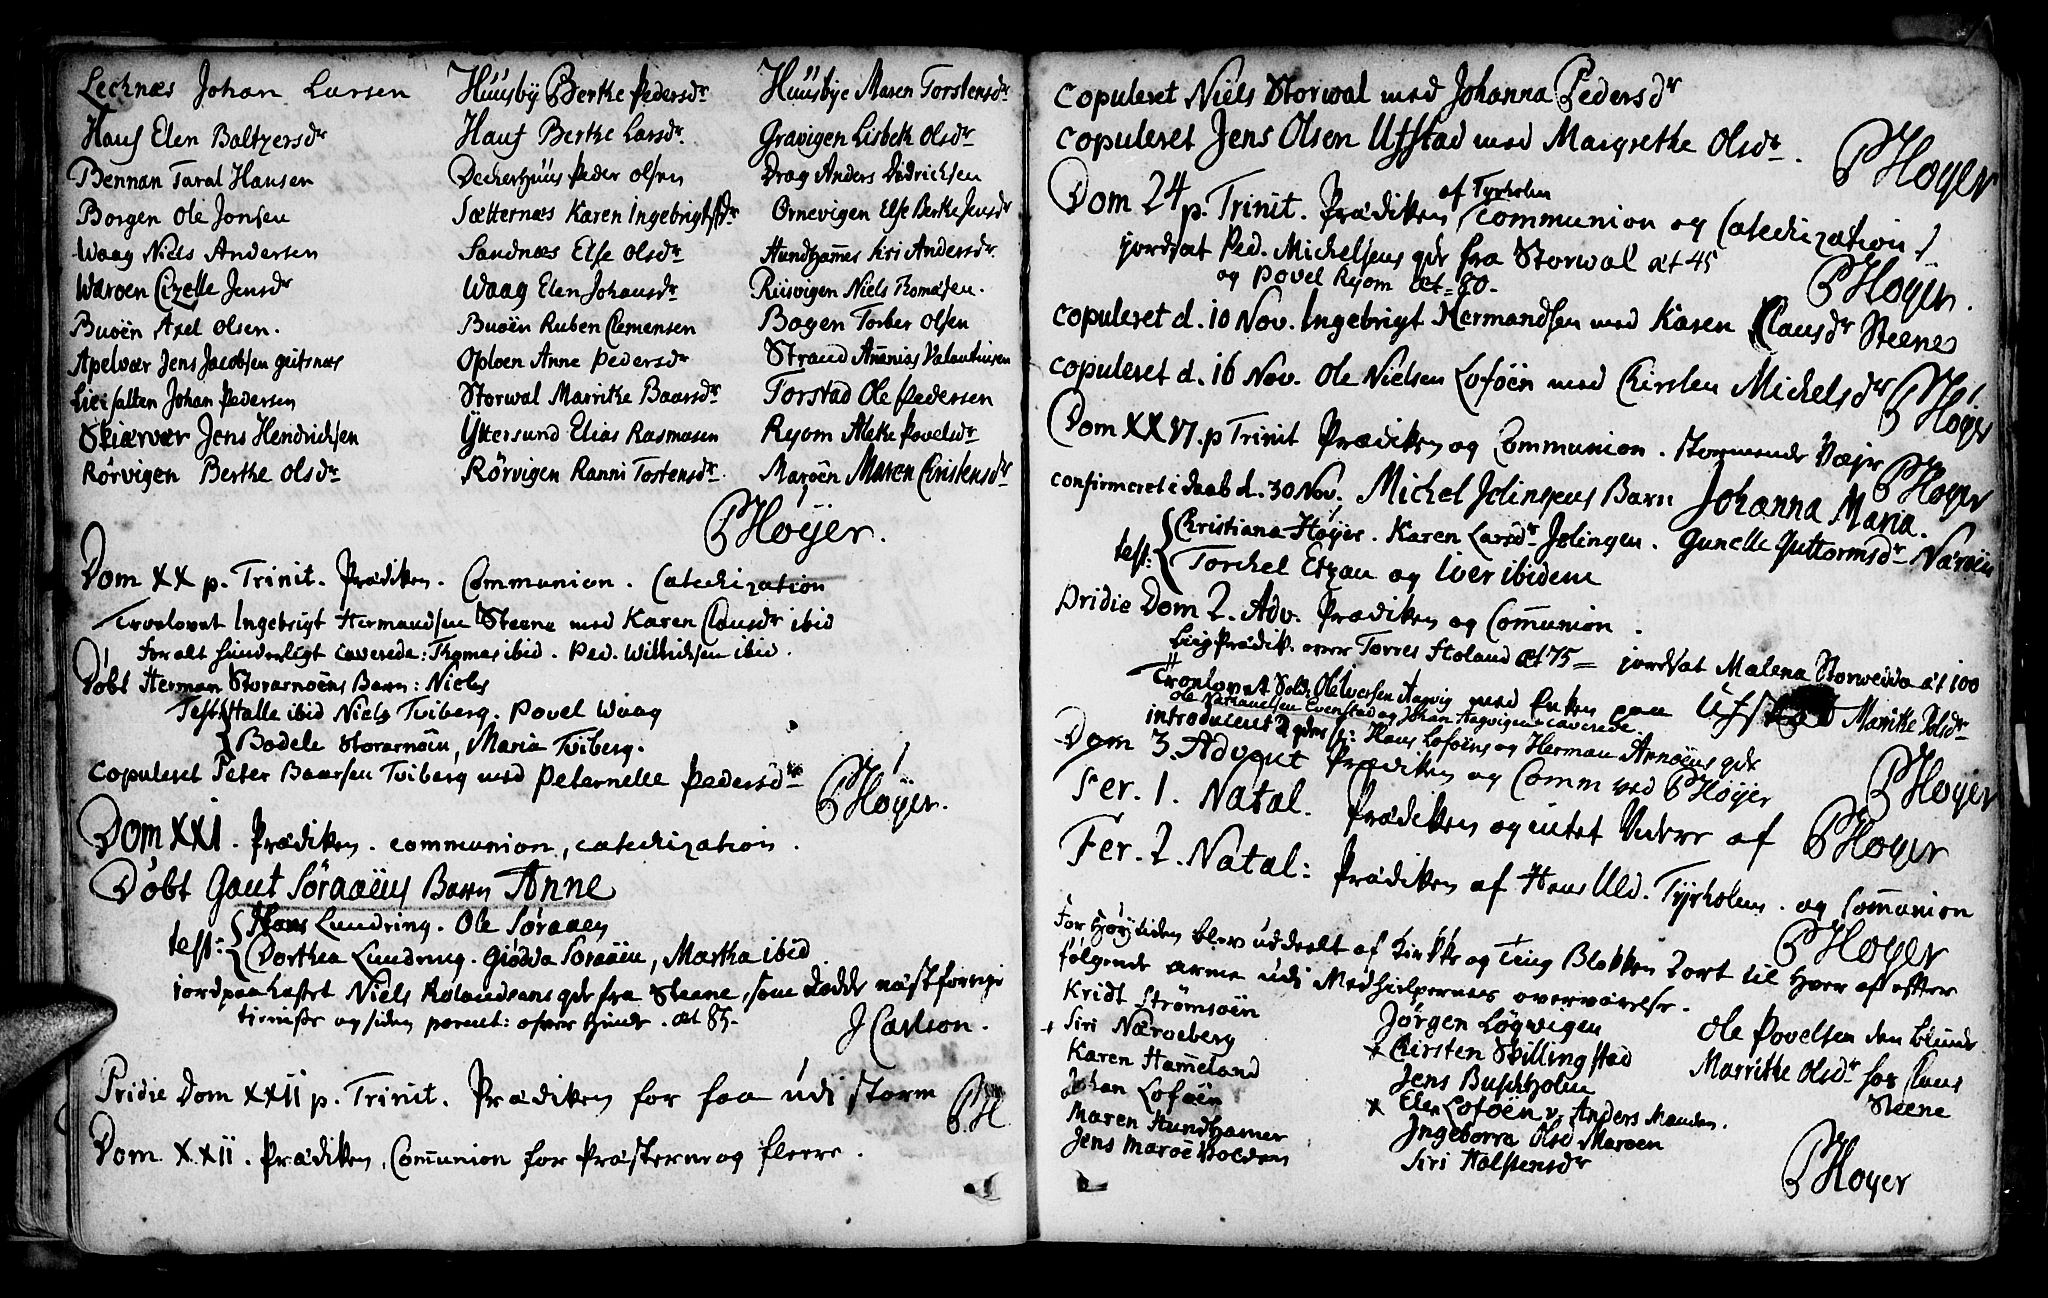 Lecknæs Johan Larsen
Hauf Elen Baltzersdr
Bennan Taral Hansen
Borgen Ole Jonsen
Waag Niels Andersen
Waroen Cizelle Jensdr
Buöen Axel Olsen.
Apelvær Jens Jacobsen
Johan Pedersen
Skiærvær Jens Hendrichsen
Rörvigen Berthe Olsdr
Huusby Berthe Pedersdr
Hauf Berthe Larsdr.
Deckerhuus Peder Olsen
Sætternæs Karen Ingebrigtsdr
Sandnæs Else Olsdr
Waag Elen Johansdr
Buöen Ruben Clemensen
Oploen Anne Pedersdr
Storwal Marrithe Baarsdr
Yttersund Elias Rasmusen
Rörvigen Ranni Tostensdr
Huusbye Maren Torstensdr
Gravigen Lisbeth Olsdr
Drag Anders Didrichsen
Ornevigen Else Berthe Jensdr
Hundham̄er Siri Andersdr
Riisvigen Niels Thomasen.
Bogen Torber Olsen
Strand Ananias Valentinsen
Torstad Ole Pedersen
Ryom Alethe Povelsdr
Maröen Maren Christensdr
PHöyer.
Dom XX p. Trinit. Prædiken. Communion. Catechization
Troelovet Ingebrigt Hermandsen Steene med Karen Clausdr ibid
for alt hinderligt caverede: Thomas ibid. Ped. Willichsen ibid.
Döbt Herman Storarnöens Barn: Niels
Test: Halle ibid Niels Tviberg. Povel Waag
Bodele Storarnöen, Maria Tviberg.
copuleret Peter Baarsen Tviberg med Petarnelle Pedersdr
PHöyer.
Dom XXI. Prædiken. communion, catechization.
Döbt Gaut Söraaens Barn Anne
Hans Lundring. Ole Söraaen
test: Dorthea Lundring. Giödda Söraaen, Martha ibid.
jordpaakastet Niels Rolandsens qde fra Steene, som dødde næst forrige
og siden æt 85.
J Carlson.
Pridie Dom XXII p. Trinit. Prædiken for faa udi storm PH
Dom XXII. Prædiken, Com̄union for Præsterne og fleere.
copuleret Niels Storwal med Johanna Pedersdr
copuleret Jens Olsen Ufstad med Margrethe Olsdr.
PHöyer
Dom 24 p. Trinit. Prædiken af Tyrholm Communion og Catechization
jordsat Ped. Michelsens qde fra Storwal æt 45
og Povel Ryom æt 80.
PHöyer.
copuleret d. 10 Nov. Ingebrigt Hermandsen med Karen Clausdr Steene
copuleret d. 16 Nov. Ole Nielsen Lofoen med Chirsten Michelsdr
PHöyer
Dom XXVI. p Trinit Prædiken og Communion. stormende Vejr
PHöyer
confirmeret i daab d. 30 Nov. Michel Jelingens Barn Johanna Maria.
test: Christiana Höyer. Karen Larsdr Jelingen. Gunelle Guttormsdr Næröen
Torchel Etzau og Iver ibidem
Pridie Dom 2. Adv. Prædiken og Com̄union.
Liigprædik. over Torres Foland æt 75 = jordsat Malena Storwedda æt 100
Troelovet Sold. Ole Iversen Aagvig med Enken paa Ufstad Marrithe Polsdr
Ole Natanaelsen Evenstad og Johan Aagvigen caverede
introduceret 2 qder: Hans Lofoens og Herman Arnöens qde
Dom 3. Advent Prædiken og Comm ved PHöyer
PHöyer
Fer. 1. Natal. Prædiken og intet videre af PHöyer
Fer. 2. Natal: Prædiken af Hans Uld. Tyrholm. og Com̄union
PHöyer
For Höytiden blev uddeelt af Kirke og Ting Blokken 2 ort til hver af efter
følgende arme udi Medhielpernes overværelse.
Kridt Strömsöen
Siri Næroeberg
Karen Ham̄eland
Johan Lofoen
Maren Hundhamer
Jens Maröe
Jörgen Lögwigen
x Chirsten Skillingstad
Jens Buschholm
x Elen Lofoen v. Anders Manden.
Ingeborra Olsd Maroen
Siri Halstensdr
Ole Povelsen den blinde
Marrithe Olsdr hos Claus
Steene
PHöyer